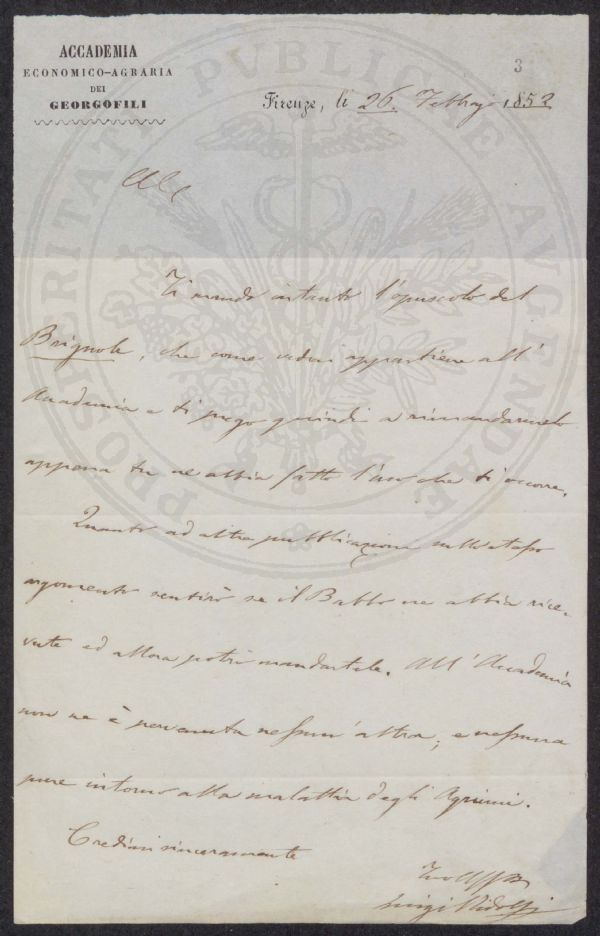 ACCADEMIA
ECONOMICO-AGRARIA
DEI
GEORGOFILI
3
Firenze, li 26. Febbrajo 1852
Ti mando intanto l'opuscolo del
Brignole, che come vedrai appartiene all'
Accademia e ti prego quindi a rimandarmelo
appena tu ne abbia fatto l'uso che ti occorre.
Quanto ad altre pubblicazioni sullo stesso
argomento sentirò se il Babbo ne abbia rice-
vute ed allora potrò mandartele. All'Accademia
non ne è pervenuta nessun'altra, e nessuna
pure intorno alla malattia degli Agrumi.
Credimi sinceramente
Tuo Aff
Luigi Ridolfi
PROSPERITATI PVBLICAE AVGENDAE